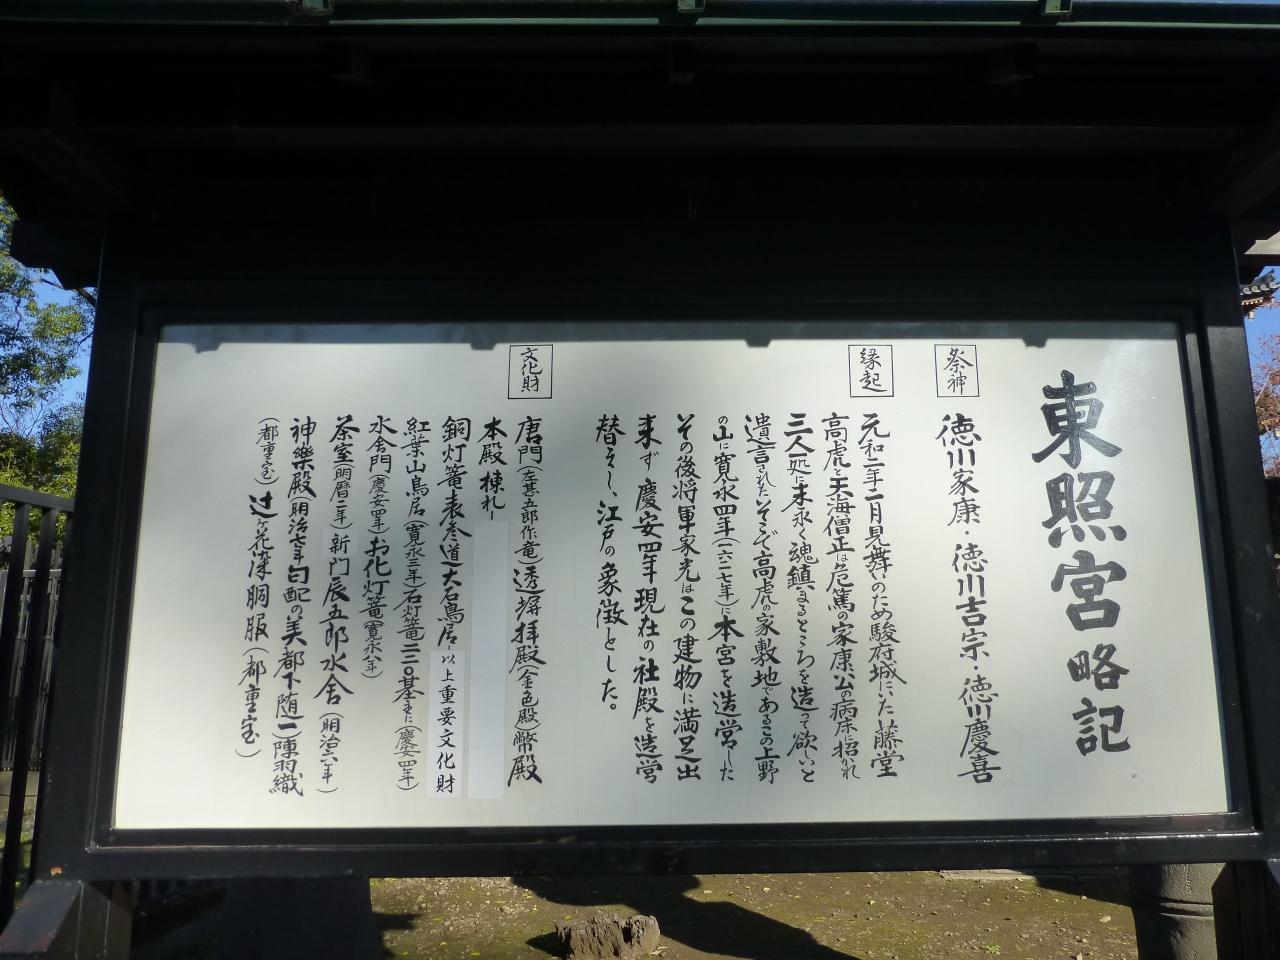 東照宮略記
祭神
徳川家康・徳川吉宗・徳川慶喜
縁起
元和二年二月見舞いのため駿府城にいた藤堂
高虎と天海僧正は危篤の家康公の病床に招かれ
三人一処に末永く魂鎮まるところを造って欲しいと
遺言されたそこで高虎の家敷地であるこの上野
の山に寛永四年(一六二七年)に本宮を造営した
その後将軍家光はこの建物に満足出
来ず慶安四年現在の社殿を造営
替えし、江戸の象徴とした。
文化財
唐門(左甚五郎作竜)透塀拝殿(金色殿)幣殿
本殿棟札一
銅灯篭表参道大石鳥居一以上重要文化財
紅葉山鳥居(寛永三年)石灯篭二二〇基主に(慶安四年)
水舎門(慶安四年)お化灯篭(寛永八年)
茶室(明暦二年)新門辰五郎水舎(明治六年)
神樂殿(明治七年勾配の美都下随一)陣羽織
(都重宝)辻ヶ花染胴服(都重宝)